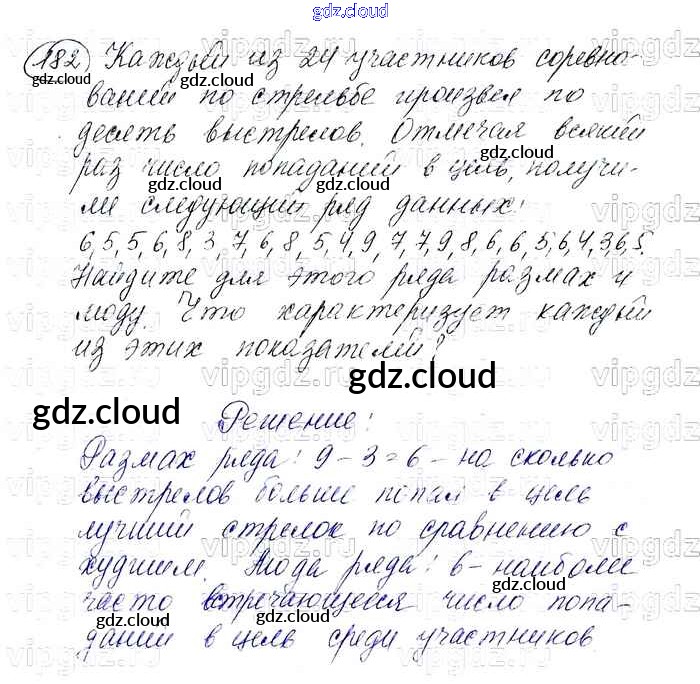 gdz.cloud
182 Каждый из 24 участников соревно-
ваний по стрельбе произвел по
десять выстрелов. Отмечая всякий
раз число попаданий в цель, получи-
ли следующий ряд данных:
6,5,5,6,8,3,7,6,8,5,4,9,7,7,9,8,6,6,5,6,4,3,6,5.
Найдите для этого ряда размах и
моду. Что характеризует каждый
из этих показателей?
gdz.cloud
gdz.cloud
Решение:
Размах ряда: 9-3=6 - на сколько
выстрелов больше попал в цель
лучший стрелок по сравнению с
худшим. Мода ряда: 6 - наиболее
часто встречающееся число попа-
даний в цель среди участников.